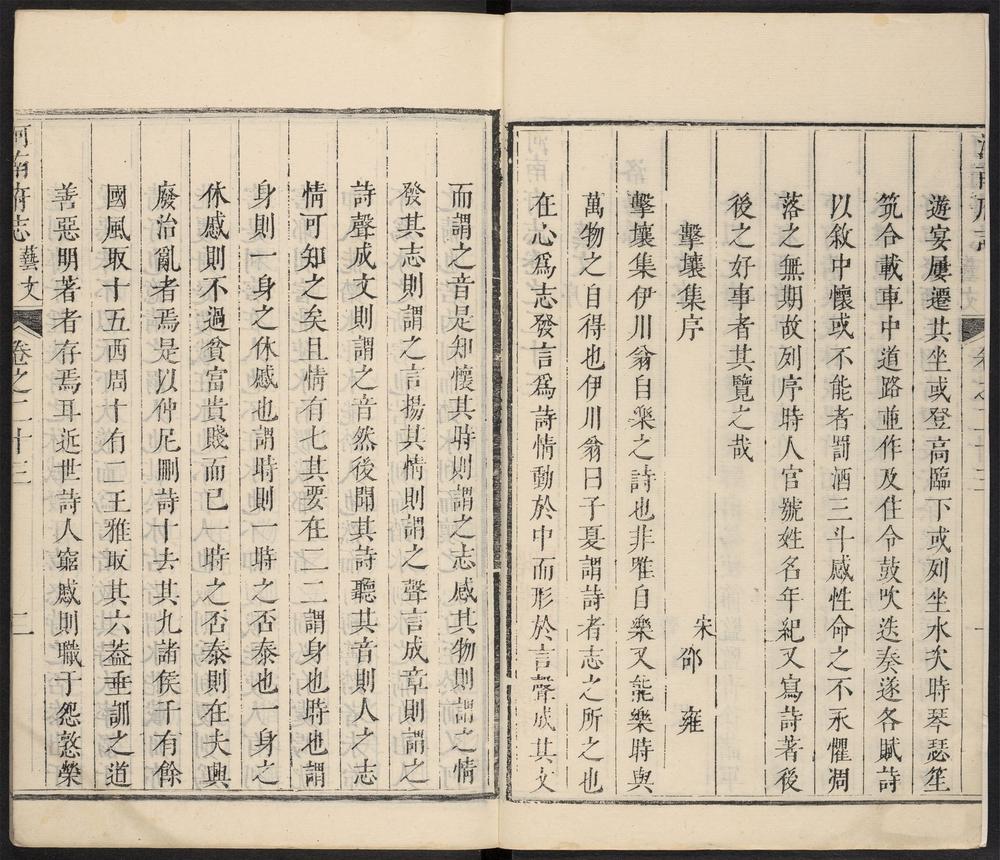 遊宴屢遷其坐或登高臨下或列坐水次時琴瑟笙
筑合載車中道路並作及住令鼓吹迭奏遂各賦詩
以敘中懷或不能者罰酒三斗感性命之不永懼凋
落之無期故列序時人官號姓名年紀又寫詩著後
後之好事者其覽之哉
擊壤集序
宋 邵 雍
擊壤集伊川翁自樂之詩也非唯自樂又能樂時與
萬物之自得也伊川翁曰子夏謂詩者志之所之也
在心爲志發言爲詩情動於中而形於言聲成其文
而謂之音是知懷其時則謂之志感其物則謂之情
發其志則謂之言揚其情則謂之聲言成章則謂之
詩聲成文則謂之音然後聞其詩聽其音則人之志
情可知之矣且情有七其要在二二謂身也時也謂
身則一身之休慼也謂時則一時之否泰也一身之
休慼則不過貧富貴賤而已一時之否泰則在夫興
廢治亂者焉是以仲尼刪詩十去其九諸侯千有餘
國風取十五西周十有二王雅取其六蓋垂訓之道
善惡明著者存焉耳近世詩人窮慼則職于怨憝榮
河南府志 藝文 卷之二十三 二